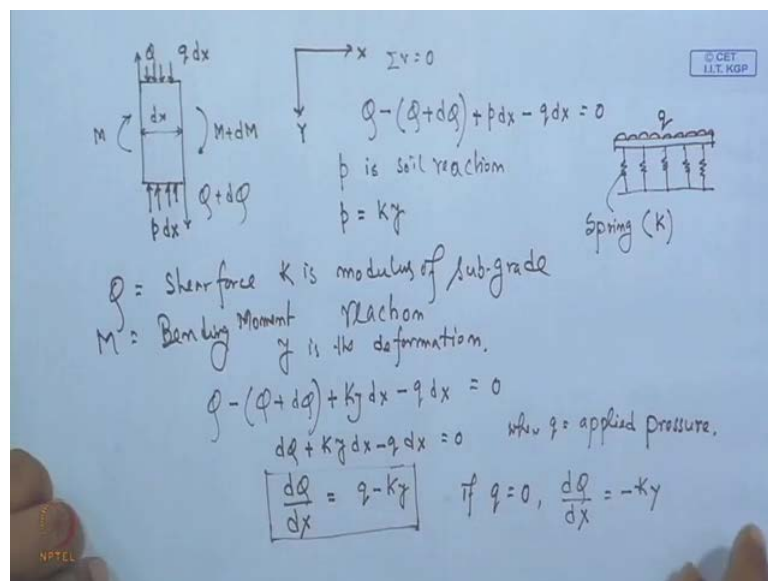 Q q dx
X
ΣV = 0
© CET
I.I.T. KGP
dx
M
M+dM
Y
Q - (Q + dQ) + p dx - q dx = 0
q
p is soil reaction
Q + dQ
p dx
p = Ky
Spring (K)
Q = Shear force K is modulus of sub-grade
reaction
M = Bending Moment
y is the deformation.
Q - (Q + dQ) + Ky dx - q dx = 0
dQ + Ky dx - q dx = 0 when q = applied pressure.
dQ/dx = q - Ky if q = 0, dQ/dx = -Ky
NPTEL